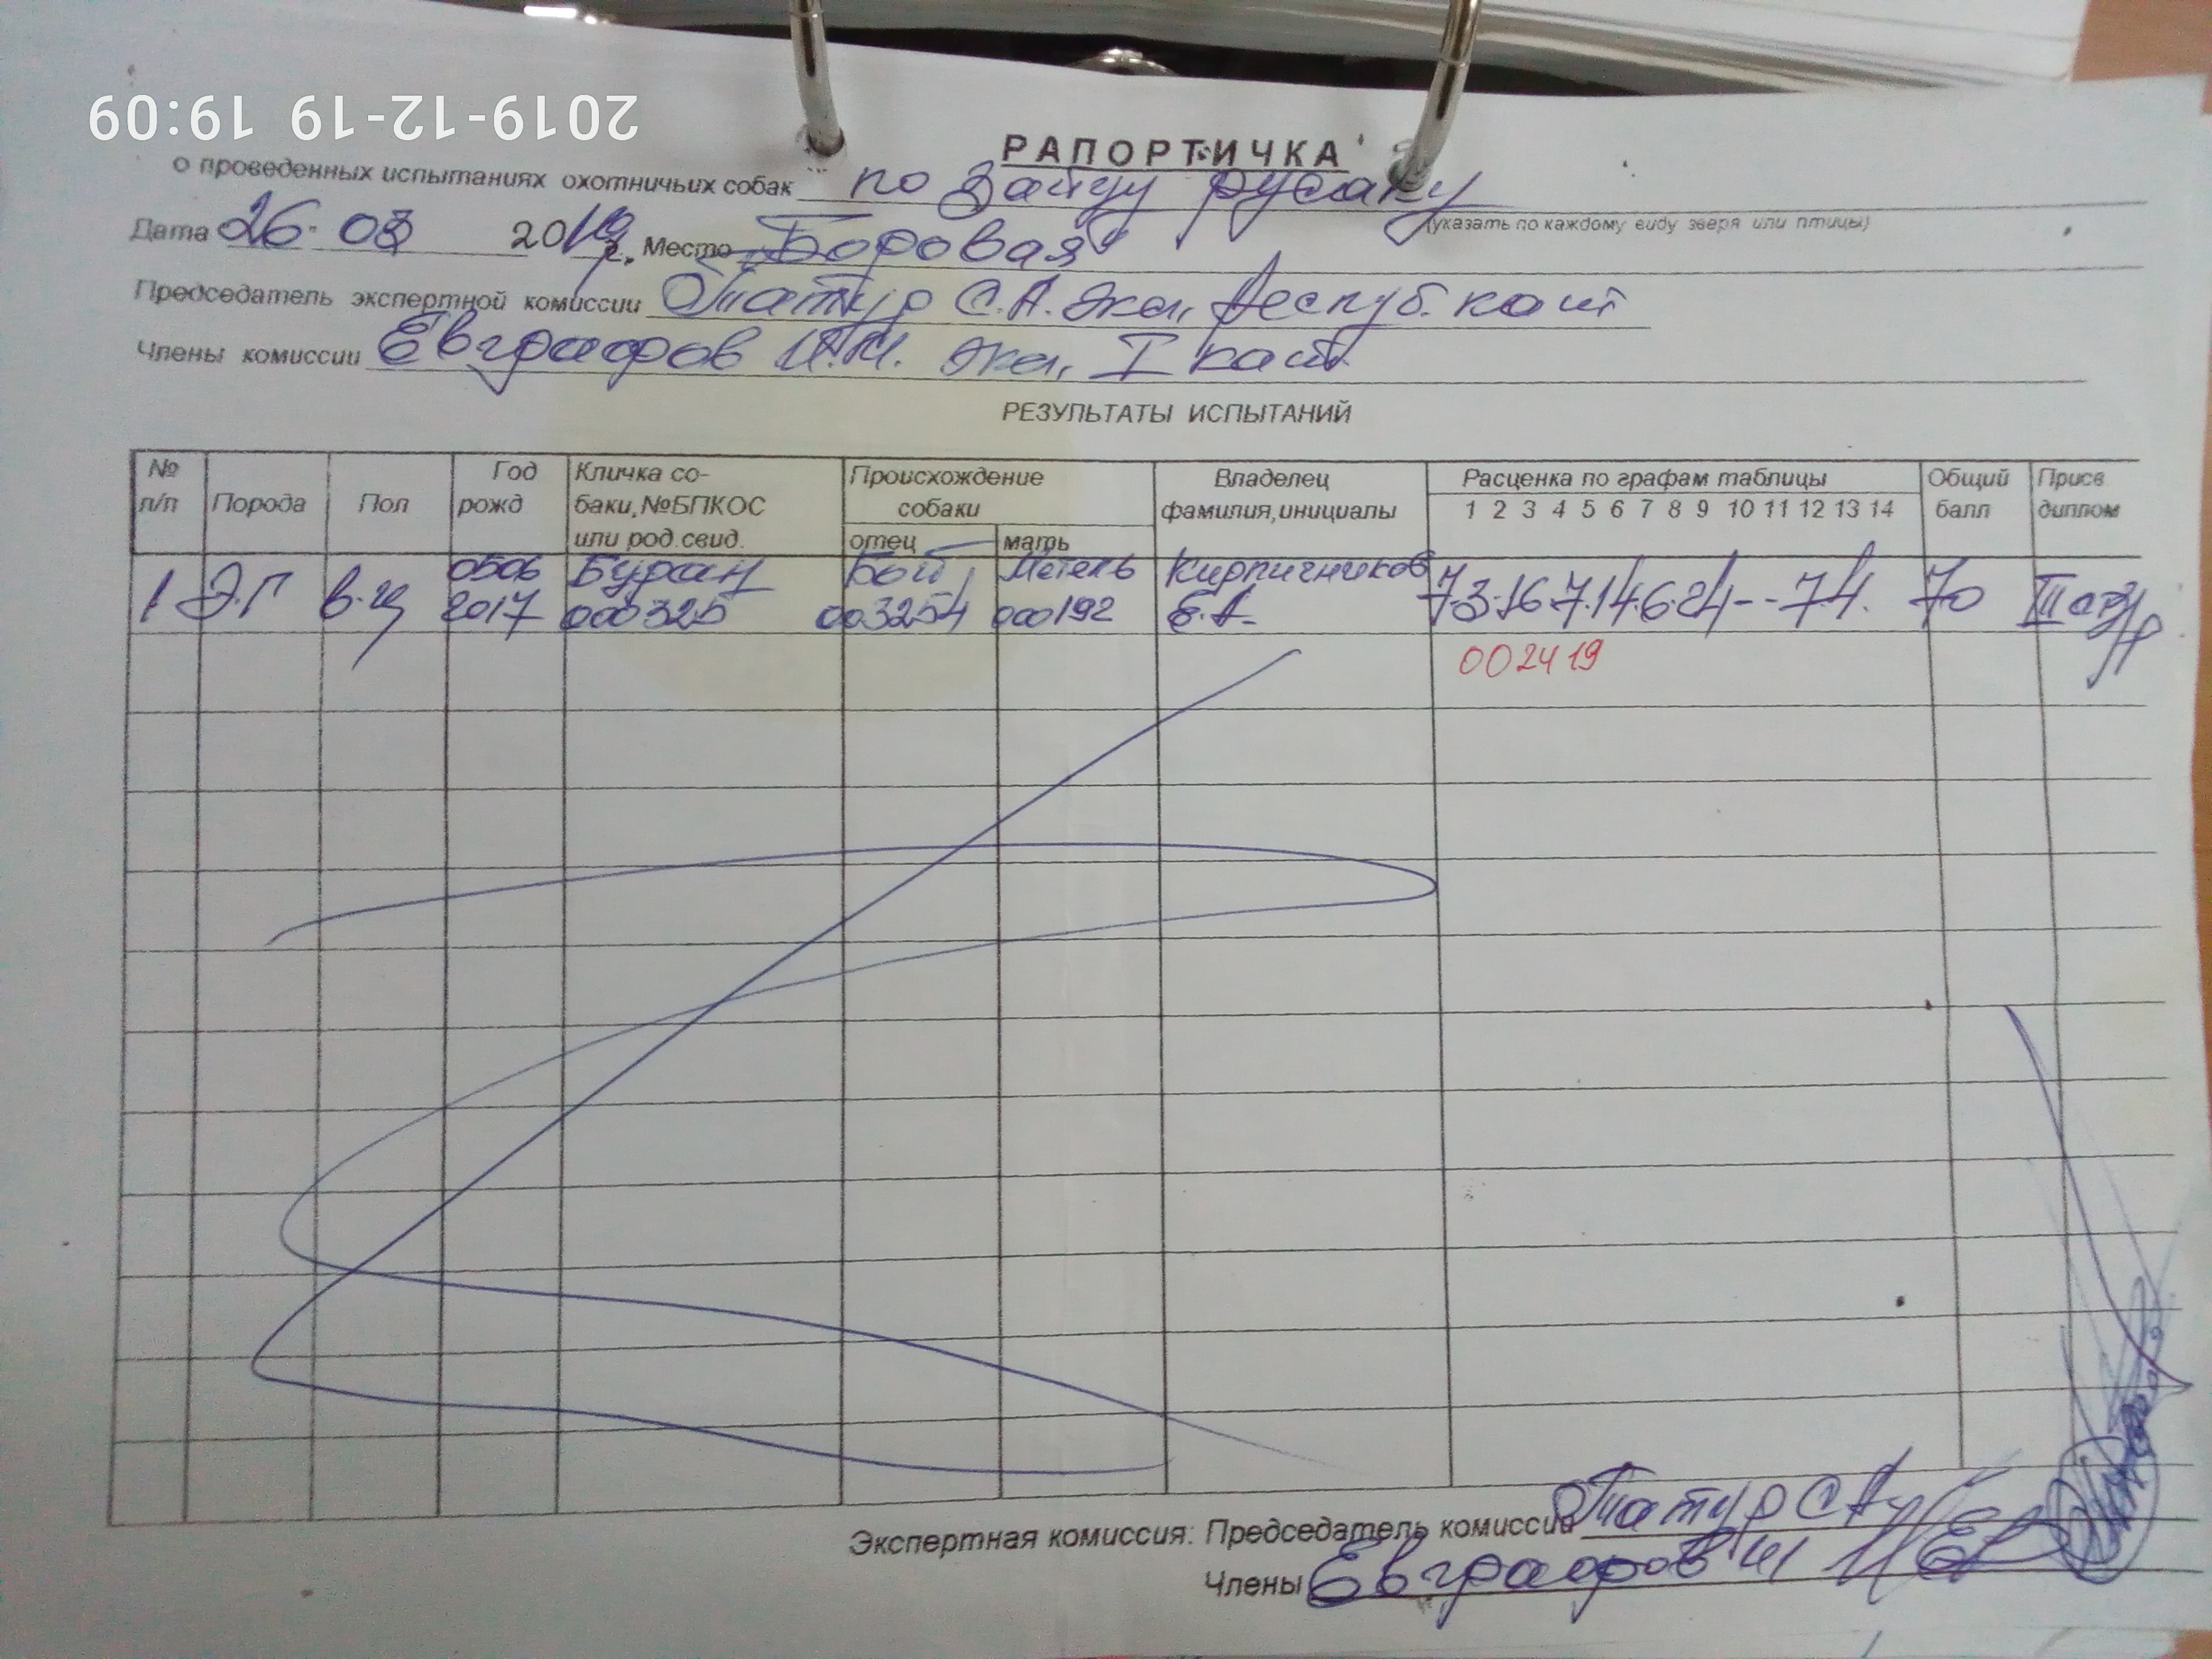 2019-12-19 19:09
РАПОРТИЧКА
о проведенных испытаниях охотничьих собак по зайцу русаку
(указать по каждому виду зверя или птицы)
Дата 26. 08 2019 г. Место Боровая
Председатель экспертной комиссии Татур С.А. экс, Республ. кат
Члены комиссии Евграфов И.И. экс, I кат.
РЕЗУЛЬТАТЫ ИСПЫТАНИЙ
№ п/п Порода Пол Год рожд Кличка собаки, №БПКОС или род.свид. Происхождение собаки отец мать Владелец фамилия, инициалы Расценка по графам таблицы 1 2 3 4 5 6 7 8 9 10 11 12 13 14 Общий балл Присв диплом
1 Э.Г 0506 2017 Буран 000325 Бой 003254 Метель 000192 Кирпичников Е.А. 70 III
002419
Экспертная комиссия: Председатель комиссии Татур С А
Члены Евграфов И